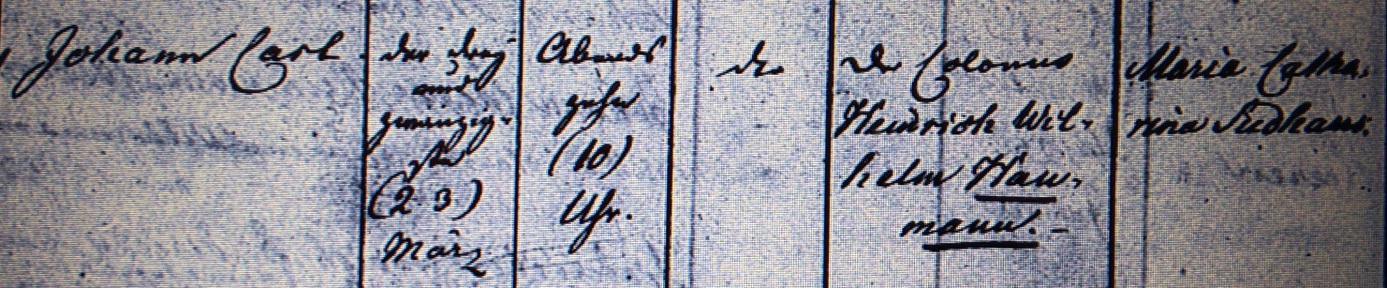 Johann Carl
der drey
und
zwanzig-
ste
(23)
März
Abends
zehn
(10)
Uhr.
do
Der Colonus
Heinrich Wil-
helm Hau-
mann. -
Maria Catha-
rina Sudhaus.